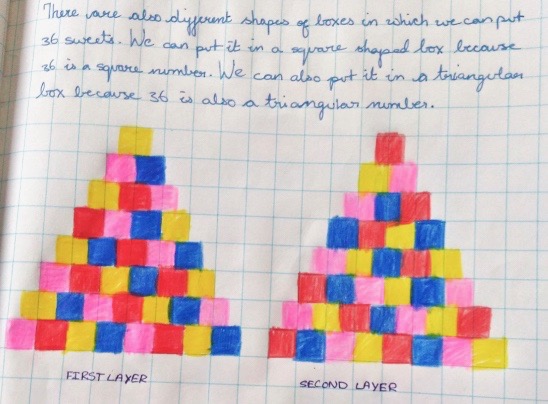 There are also different shapes of boxes in which we can put
36 sweets. We can put it in a square shaped box because
36 is a square number. We can also put it in a triangular
box because 36 is also a triangular number.
FIRST LAYER
SECOND LAYER